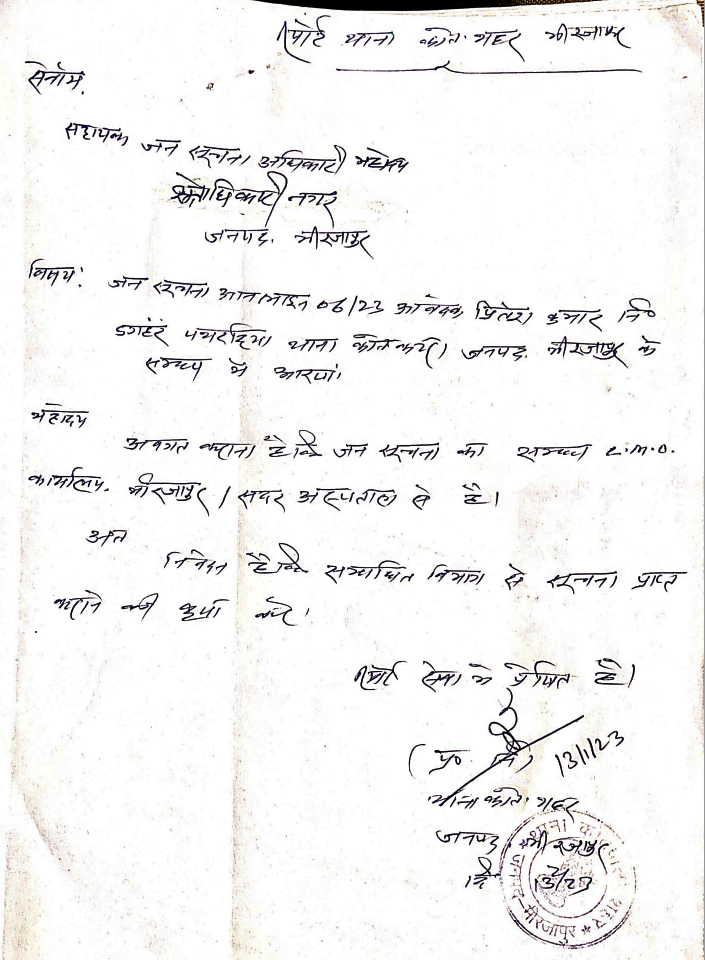 रिपोर्ट थाना कोत. शहर मीरजापुर
सेवा में,
सहायक जन सूचना अधिकारी महोदय
क्षेत्राधिकारी नगर
जनपद. मीरजापुर
विषय: जन सूचना आनलाइन 06/23 आवेदक प्रितेश कुमार नि०
थाना जनपद. मीरजापुर के
सम्बन्ध में आख्या।
महोदय
अवगत कराना है कि जन सूचना का सम्बन्ध C.M.O.
कार्यालय. मीरजापुर / सदर अस्पताल से है।
अतः
निवेदन है कि सम्बन्धित विभाग से सूचना प्राप्त
कराने की कृपा करें।
रिपोर्ट सेवा में प्रेषित है।
(प्र० नि) 13/1/23
थाना कोत. शहर
जनपद. मीरजापुर
दि 13/1/23
थाना कोतवाली शहर
जनपद-मीरजापुर